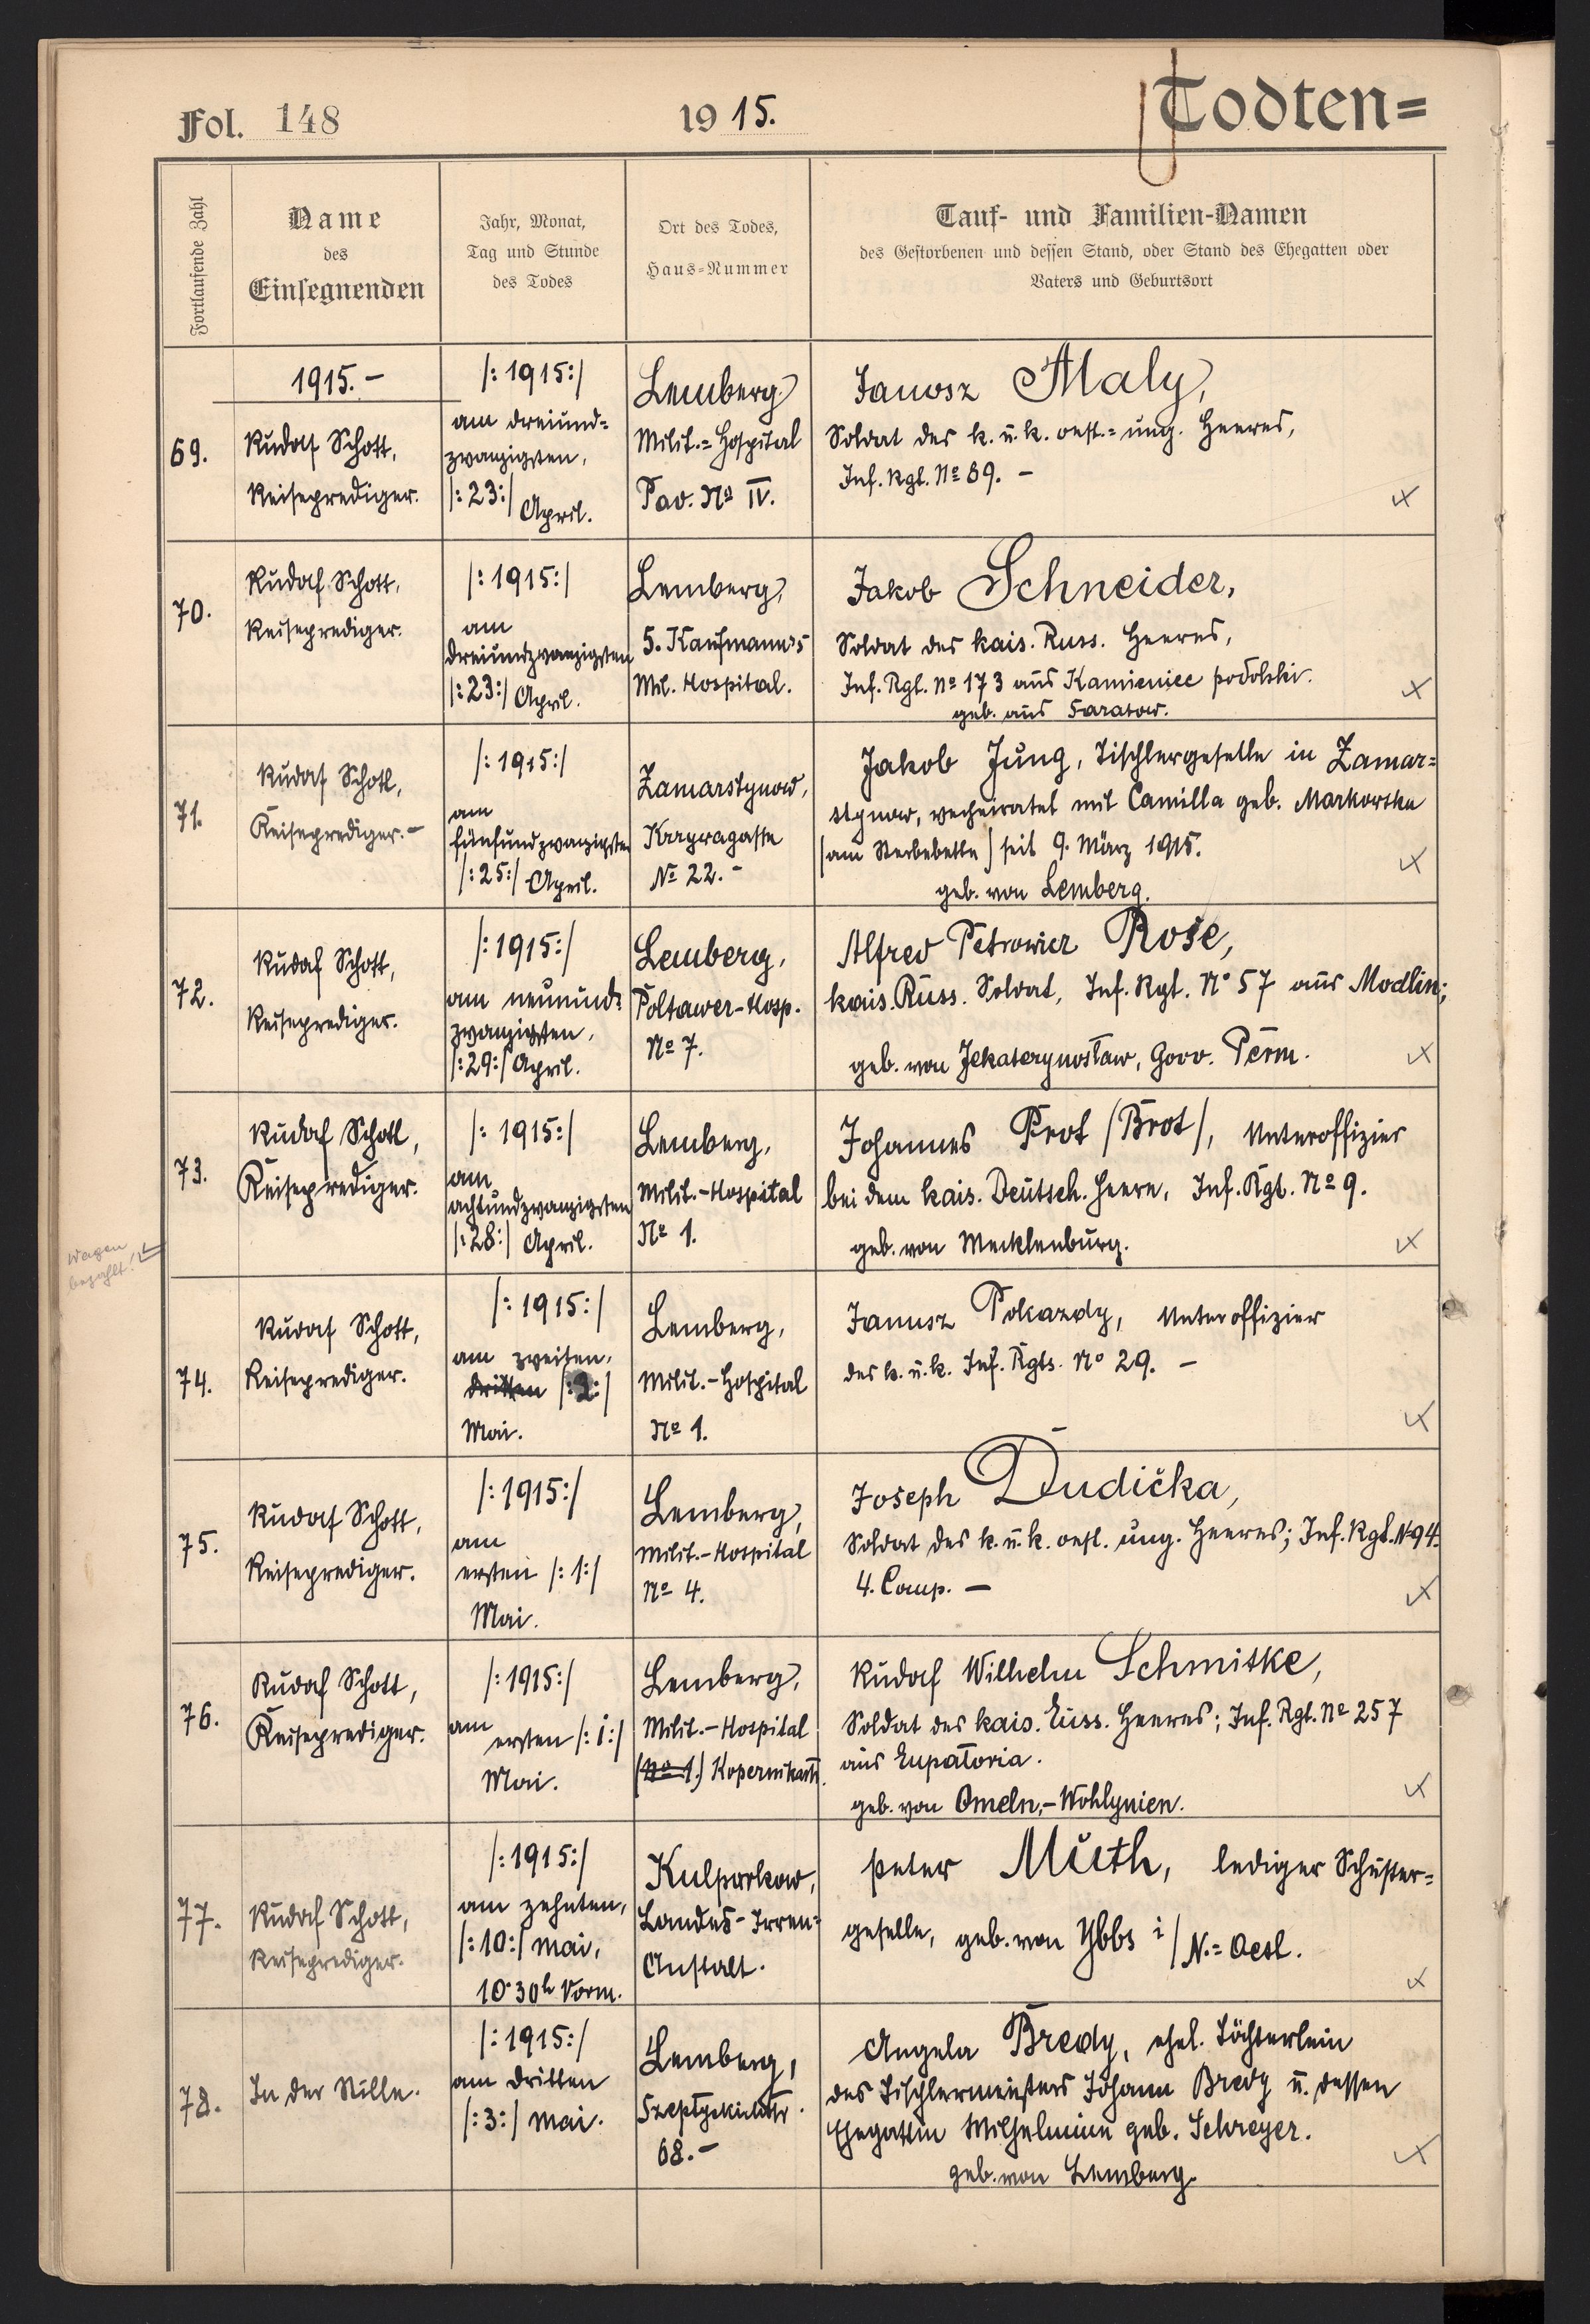 Fol. 148
19 15.
Todten=
Fortlaufende Zahl
Name
des
Einsegnenden
Jahr, Monat,
Tag und Stunde
des Todes
Ort des Todes,
Haus-Nummer
Tauf- und Familien-Namen
des Gestorbenen und dessen Stand, oder Stand des Ehegatten oder
Vaters und Geburtsort
69.
1915.-
Rudolf Schott,
Reiseprediger.
/: 1915:/
am dreiund=
zwanzigsten,
/: 23:/ April.
Lemberg,
Milit.=Hospital
Pav. No IV.
Janosz Maly,
Soldat des k. u. k. oest.=ung. Heeres,
Inf. Rgt. No 89. -
70.
Rudolf Schott,
Reiseprediger.
/: 1915:/
am
dreiundzwanzigsten
/: 23:/ April.
Lemberg,
5. Kaufmann's
Mil. Hospital.
Jakob Schneider,
Soldat des kais. Russ. Heeres,
Inf. Rgt. No 173 aus Kamieniec podolski.
geb. aus Saratow.
71.
Rudolf Schott,
Reiseprediger.-
/: 1915:/
am
fünfundzwanzigsten
/: 25:/ April.
Zamarstynow,
Krzywagasse
No 22.-
Jakob Jung, Tischlergeselle in Zamar=
stynow, verheiratet mit Camilla geb. Markowska
/am Sterbebette/ seit 9. März 1915.
geb. von Lemberg.
72.
Rudolf Schott,
Reiseprediger.
/: 1915:/
am neunund=
zwanzigsten,
/: 29:/ April.
Lemberg,
Poltawer-Hosp.
No 7.
Alfred Petrowicz Rose,
kais. Russ. Soldat, Inf. Rgt. No 57 aus Modlin;
geb. von Jekaterynosław, Gouv. Perm.
73.
Rudolf Schott,
Reiseprediger.
/: 1915:/
am
achtundzwanzigsten
/: 28:/ April.
Lemberg,
Milit.-Hospital
No 1.
Johannes Prot /Brot/, Unteroffizier
bei dem kais. Deutsch. Heere, Inf. Rgt. No 9.
geb. von Mecklenburg.
Wagen
bezahlt!
74.
Rudolf Schott,
Reiseprediger.
/: 1915:/
am zweiten,
dritten /: 2:/
Mai.
Lemberg,
Milit.-Hospital
No 1.
Janusz Pokazdy, Unteroffizier
des k. u. k. Inf. Rgts. No 29. -
75.
Rudolf Schott,
Reiseprediger.
/: 1915:/
am
ersten /: 1:/
Mai.
Lemberg,
Milit.-Hospital
No 4.
Joseph Dudička,
Soldat des k. u. k. oest. ung. Heeres; Inf. Rgt. N 94.
4. Comp. -
76.
Rudolf Schott,
Reiseprediger.
/: 1915:/
am
ersten /: 1:/
Mai.
Lemberg,
Milit.-Hospital
(No 1.)
Rudolf Wilhelm Schmitke,
Soldat des kais. Russ. Heeres; Inf. Rgt. No 257
aus Eupatoria.
geb. von Omeln,-Wohlynien.
77.
Rudolf Schott,
Reiseprediger.
/: 1915:/
am zehnten,
/: 10:/ Mai,
10·30h Vorm.
Kulparkow,
Landes-Irren=
Anstalt.
Peter Muth, lediger Schuster=
geselle, geb. von Ybbs i/N.=Oest.
78.
In der Stille.
/: 1915:/
am dritten
/: 3:/ Mai.
Lemberg,
68.-
Angela Bredy, ehel. Töchterlein
des Tischlermeisters Johann Bredy u. dessen
Ehegattin Wilhelmine geb. Schreyer.
geb. von Lemberg.